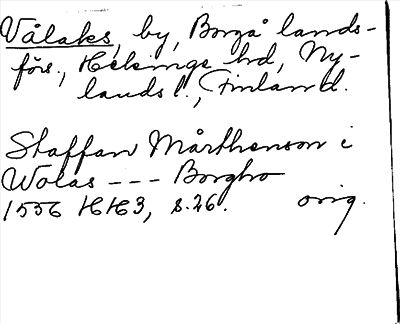 Vålaks, by, Borgå lands-
förs., Helsinge hd, Ny-
lands l., Finland.
Staffan Mårthenson i
Wolas --- Borgho
1556 HH3, s. 26. orig.